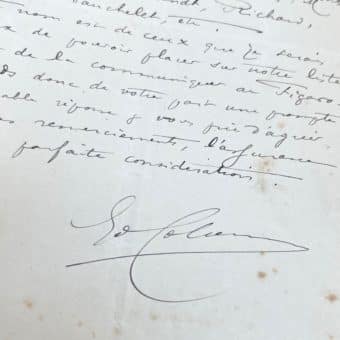 Richard,
etc!
nom est de ceux que je serais
de pouvoir placer sur notre liste
de la communiquer au Figaro.
donc de votre part une prompte
réponse & vous prie d'agréer,
remerciements, l'assurance
parfaite considération.
Ed